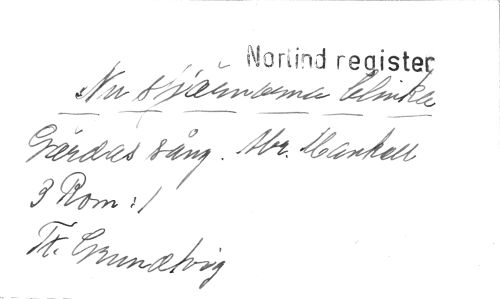 Norlind register
Nu stjärnorna blinka
Gärdas sång. Abr. Mankell
3 Rom :/
Th. Grundtvig